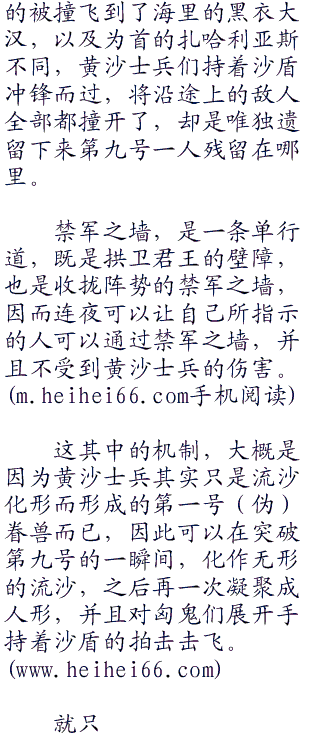 的被撞飞到了海里的黑衣大
汉，以及为首的扎哈利亚斯
不同，黄沙士兵们持着沙盾
冲锋而过，将沿途上的敌人
全部都撞开了，却是唯独遗
留下来第九号一人残留在哪
里。
禁军之墙，是一条单行
道，既是拱卫君王的壁障，
也是收扰阵势的禁军之墙，
因而连夜可以让自己所指示
的人可以通过禁军之墙，并
且不受到黄沙士兵的伤害。
(m.heihei66.com手机阅读)
这其中的机制，大概是
因为黄沙士兵其实只是流沙
化形而形成的第一号（伪）
眷兽而已，因此可以在突破
第九号的一瞬间，化作无形
的流沙，之后再一次凝聚成
人形，并且对匈鬼们展开手
持着沙盾的拍击击飞。
(www.heihei66.com)
就只